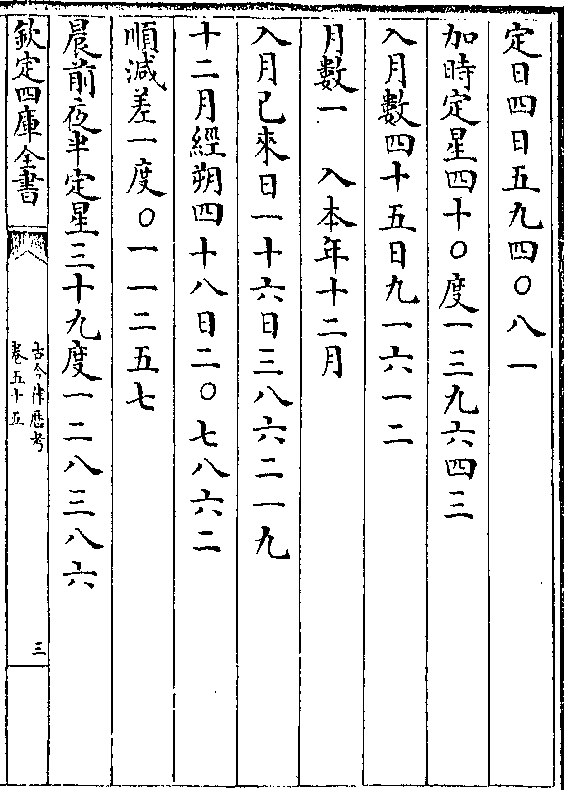 定日四日五九四〇八一
加時定星四十〇度一三九六四三
入月數四十五日九一六一二
月數一　入本年十二月
入月已來日一十六日三八六二一九
十二月經朔四十八日二〇七八六二
順減差一度〇一一二五七
晨前夜半定星三十九度一二八三八六
欽定四庫全書
古今律歷考
卷五十五
三